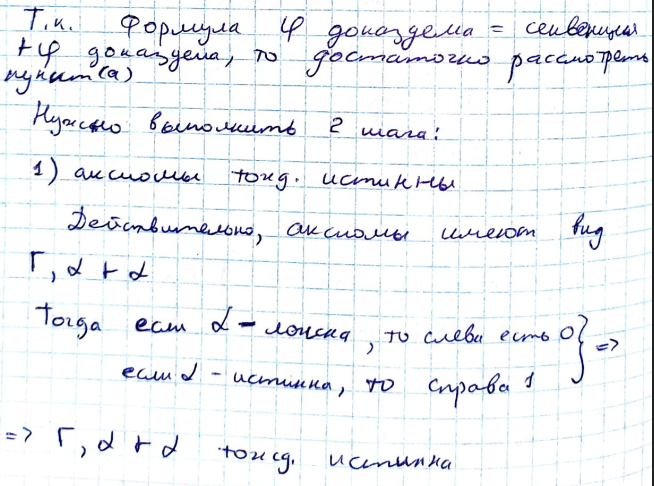 Т.к. Формула φ доказуема = секвенция
⊢φ доказуема, то достаточно рассмотреть
пункт(а)
Нужно выполнить 2 шага:
1) аксиомы тожд. истинны
Действительно, аксиомы имеют вид
Γ, α ⊢ α
Тогда если α - ложна, то слева есть 0 } =>
если α - истинна, то справа 1
=> Γ, α ⊢ α тожд. истинна